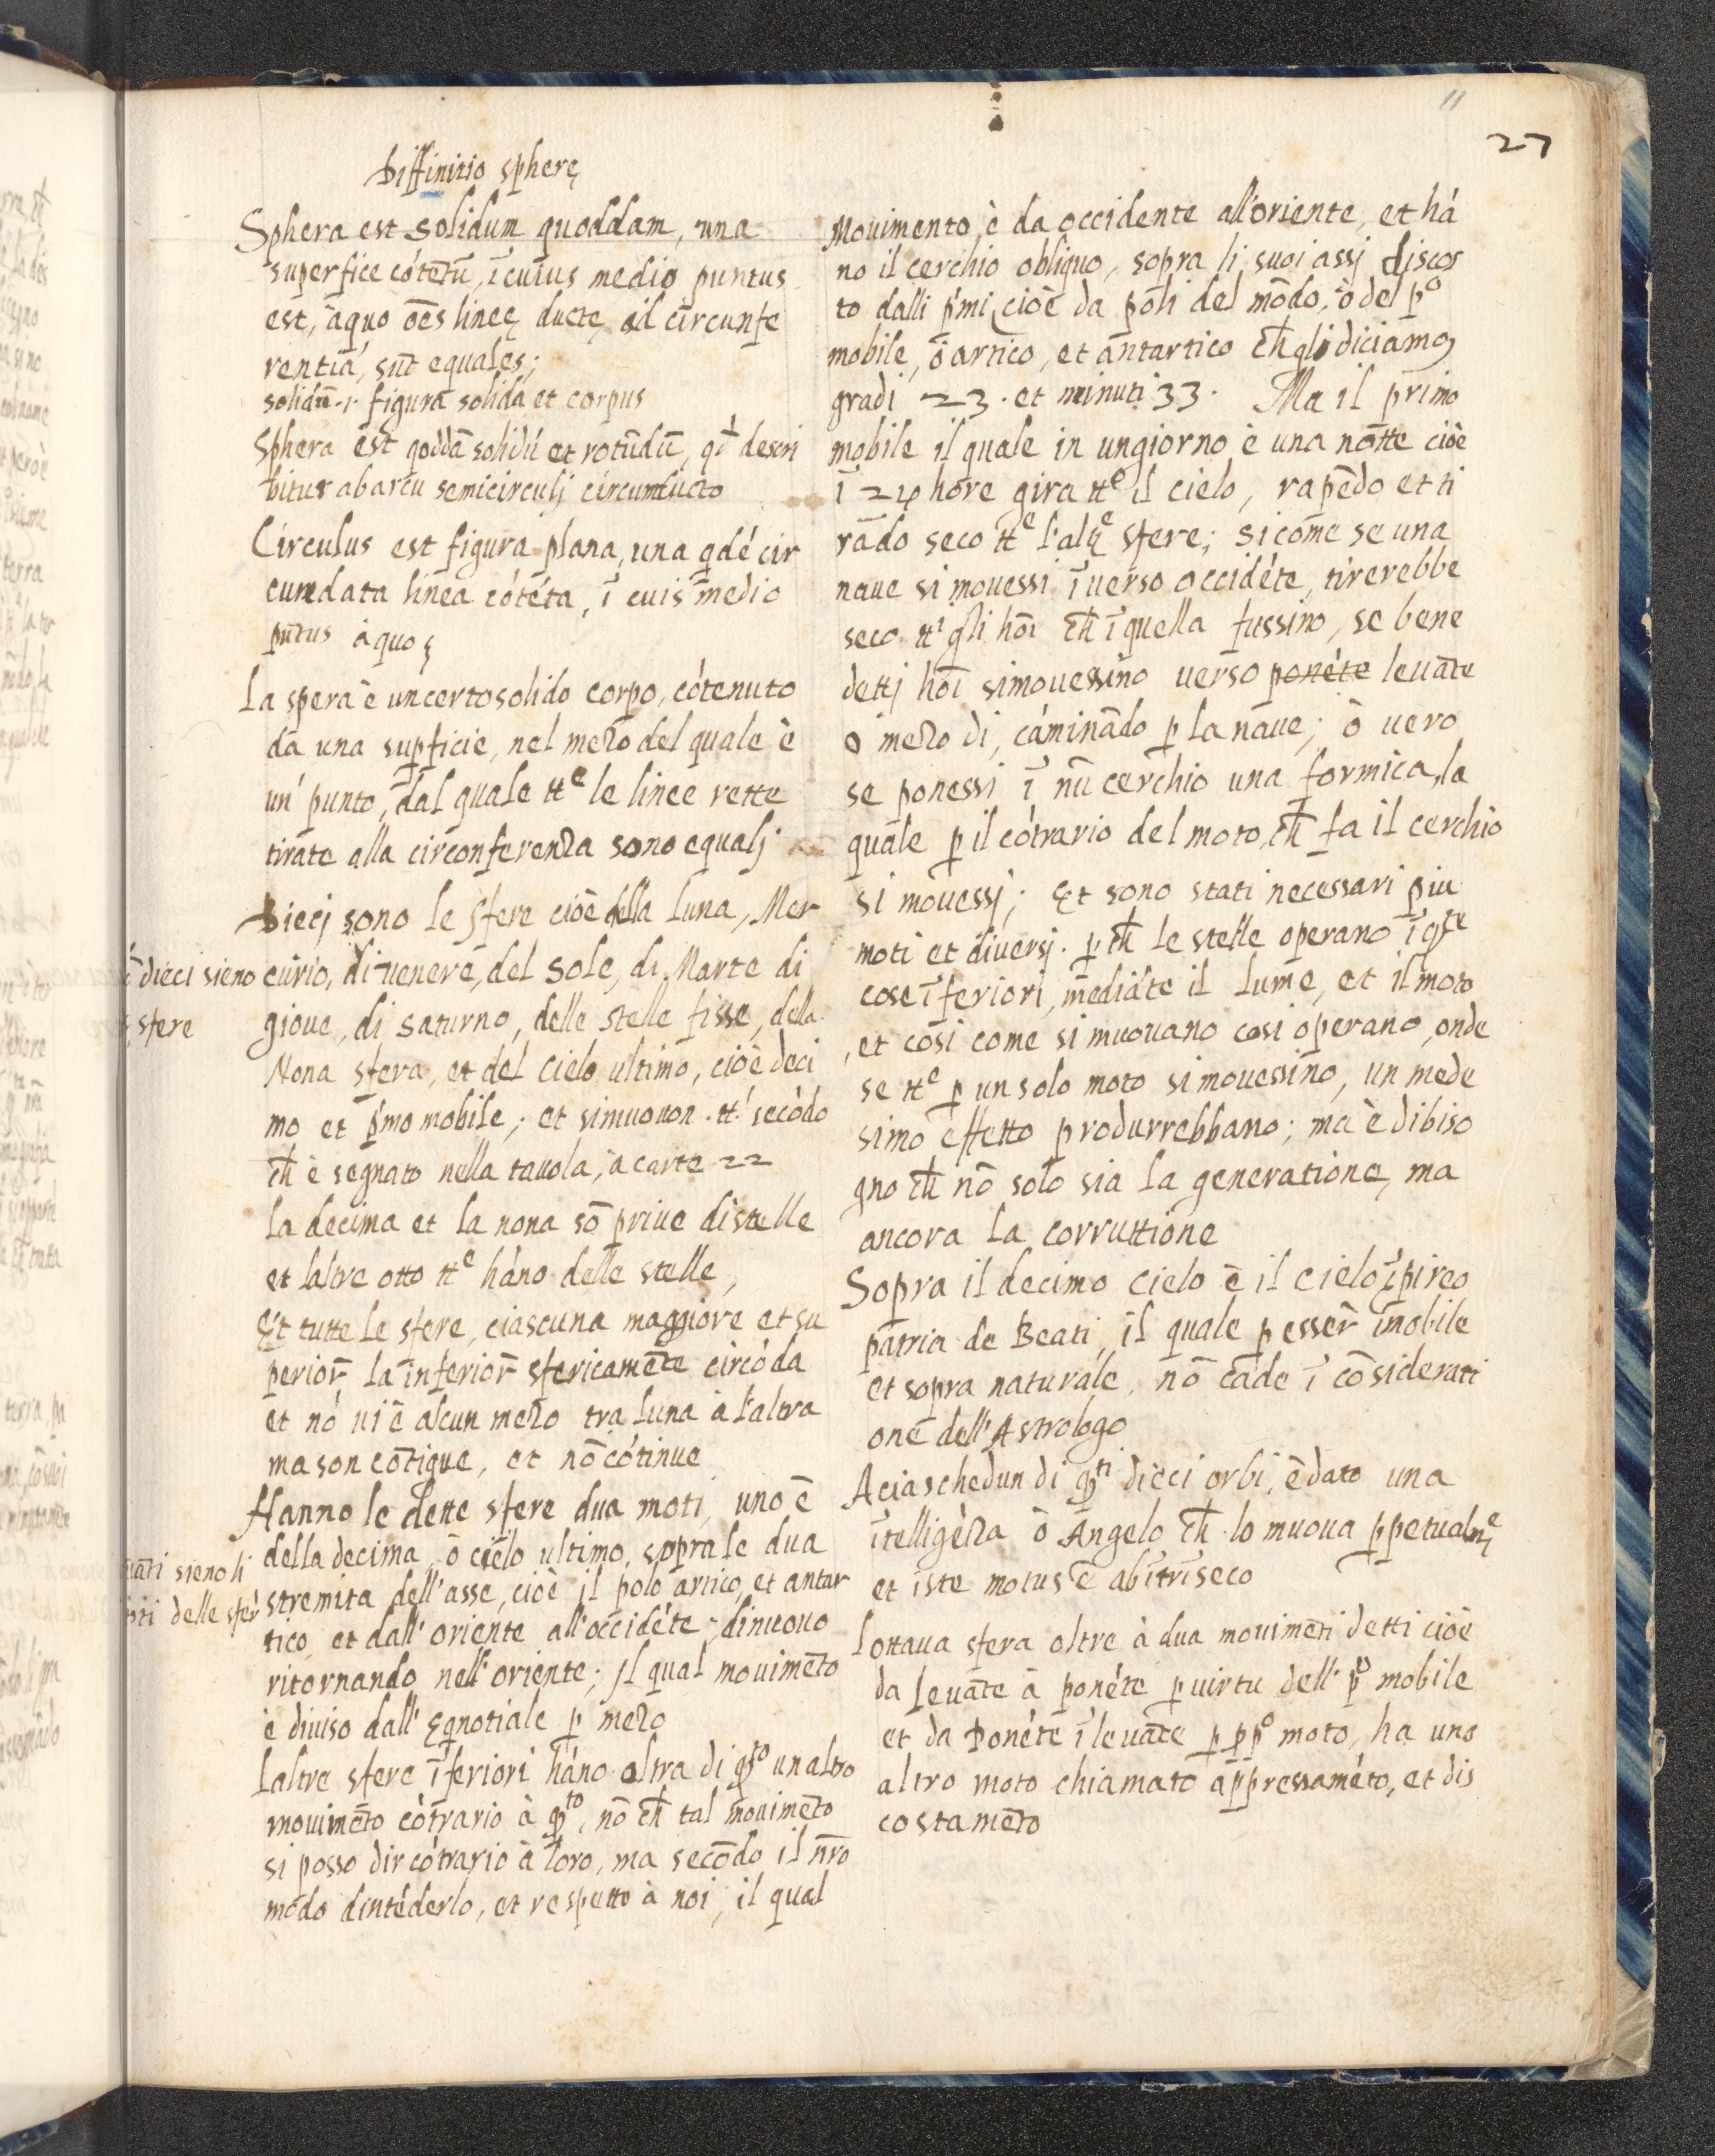 11
27
Diffinitio spherę
Sphera est solidum quoddam, una
superfice cótetū, ī cuius medio puntus
est, àquo ōēs lineę ductę ad circunfe
rentiā, sūt equales;
solidū .i. figura solida et corpus
Sphera est qoddā solidū et rotūdū, qd descri
bitur ab arcu semicirculj circumducto
Circulus est figura plana, una qdé cir
cumdata linea cótéta, ī cuis medio
pūtus à quo
La spera è un certo solido corpo, cótenuto
da una supficie, nel mezo del quale è
un' punto, dal quale ttᵉ le linee rette
tirate alla circonferenza sono equalj
Diecj sono le sfere cioè della luna, Mer
curio, di venere, del sole, di Marte di
giove, di saturno, delle stelle fisse, della
Nona sfera, et del cielo ultimo, cioè deci
mo et pᵐmo mobile; et simuovon . tt.ᵉ secódo
ch̄ è segnato nella tavola, à carte 22
la decima et la nona sō prive di stelle
et laltre otto ttᵉ háno delle stelle,
Et tutte le sfere, ciascuna maggiore et su
perior̄ la inferior̄ sfericamēte circóda
et nó ui è alcun mezo tra luna à l'altra
ma son cōtigue, et nō cótinue
Hanno le dette sfere dua moti, uno è
della decima, ò cielo ultimo, sopra le dua
stremita dell'asse, cioè il polo artico, et antar
tico, et dall'oriente all'occidéte, dinuovo
ritornando nell'oriente; Il qual movimēto
è diviso dall' Eqnotiale p̱ mezo
laltre sfere īferiori háno oltra di qsᵗᵒ un altro
movimēto cótrario à qᵗᵒ, nō ch̄ tal movimēto
si posso dir cótrario à loro, ma secōdo il nr̄o
modo dintéderlo, et respetto à noi, il qual
dieci sieno
sfere
sieno li
delle sfer
Movimento, è da occidente all'oriente, et há
no il cerchio obliquo, sopra li suoi assj discos
to dalli pᵐmi, cioè da poli del mōdo, ò del pᵒ
mobile, ò artico, et antartico ch̄ gli diciamo,
gradi 23. et minuti 33. Ma il primo
mobile il quale in ungiorno è una notte cioè
ī 24 hore gira ttᵉ il cielo, rapēdo et ti
rādo seco ttᵉ l'altᵉ sfere; si come se una
nave si movessi ī verso occidéte, tirerebbe
seco ttⁱ gli hōi ch̄ ī quella fussino, se bene
dettj hōi simovessino verso ponéte levāte
o mezo di, cáminādo p̱ la nave; ò vero
se ponessi ī nū cerchio una formica, la
quale p̱ il cótrario del moto, ch̄ fa il cerchio
si movessj; Et sono stati necessari piu
moti et diversj. p̱ ch̄ le stelle operano ī qsᵗᵉ
cose īferiori, mediáte il lume, et il moto
et cosi come si muovano cosi operano, onde
se ttᵉ p̱ un solo moto si movessino, un mede
simo effetto produrrebbano; ma è dibiso
gno ch̄ nō solo sia la generatione, ma
ancora la corruttione
Sopra il decimo cielo è il cielo ēpireo
patria de Beati, il quale p̱ esser īmobile
et sopra naturale, nō cade ī cōsiderati
one dell'Astrologo
A ciaschedun di qsᵗⁱ dieci orbi, è dato una
ītelligéza ò Angelo ch̄ lo muova p̱petualmᵉ
et iste motus ē ab ītrīseco
Lottava sfera oltre à dua movimēti detti cioè
da levāte à ponéte p̱ virtu dell' pᵒ mobile
et da Ponéte ī levāte p̱ p̱pᵒ moto, ha uno
altro moto chiamato appressaméto, et dis
costamēto